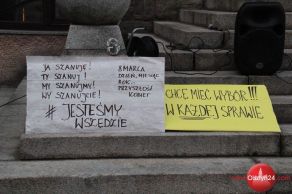 JA SZANUJĘ!
TY SZANUJ!
MY SZANUJMY!
WY SZANUJCIE!
# JESTEŚMY
WSZĘDZIE
8 MARCA
DZIEŃ, MIESIĄC
ROK...
PRZYSZŁOŚĆ
KOBIET
CHCĘ MIEĆ WYBÓR!!!
W KAŻDEJ SPRAWIE
Olsztyn24.com